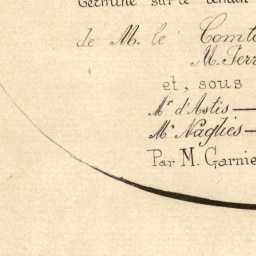 Terminé sur le terrain
de M. le Comte
M. Ferr
et, sous
Mr d'Astis—
Mr Naglies—
Par M. Garnie